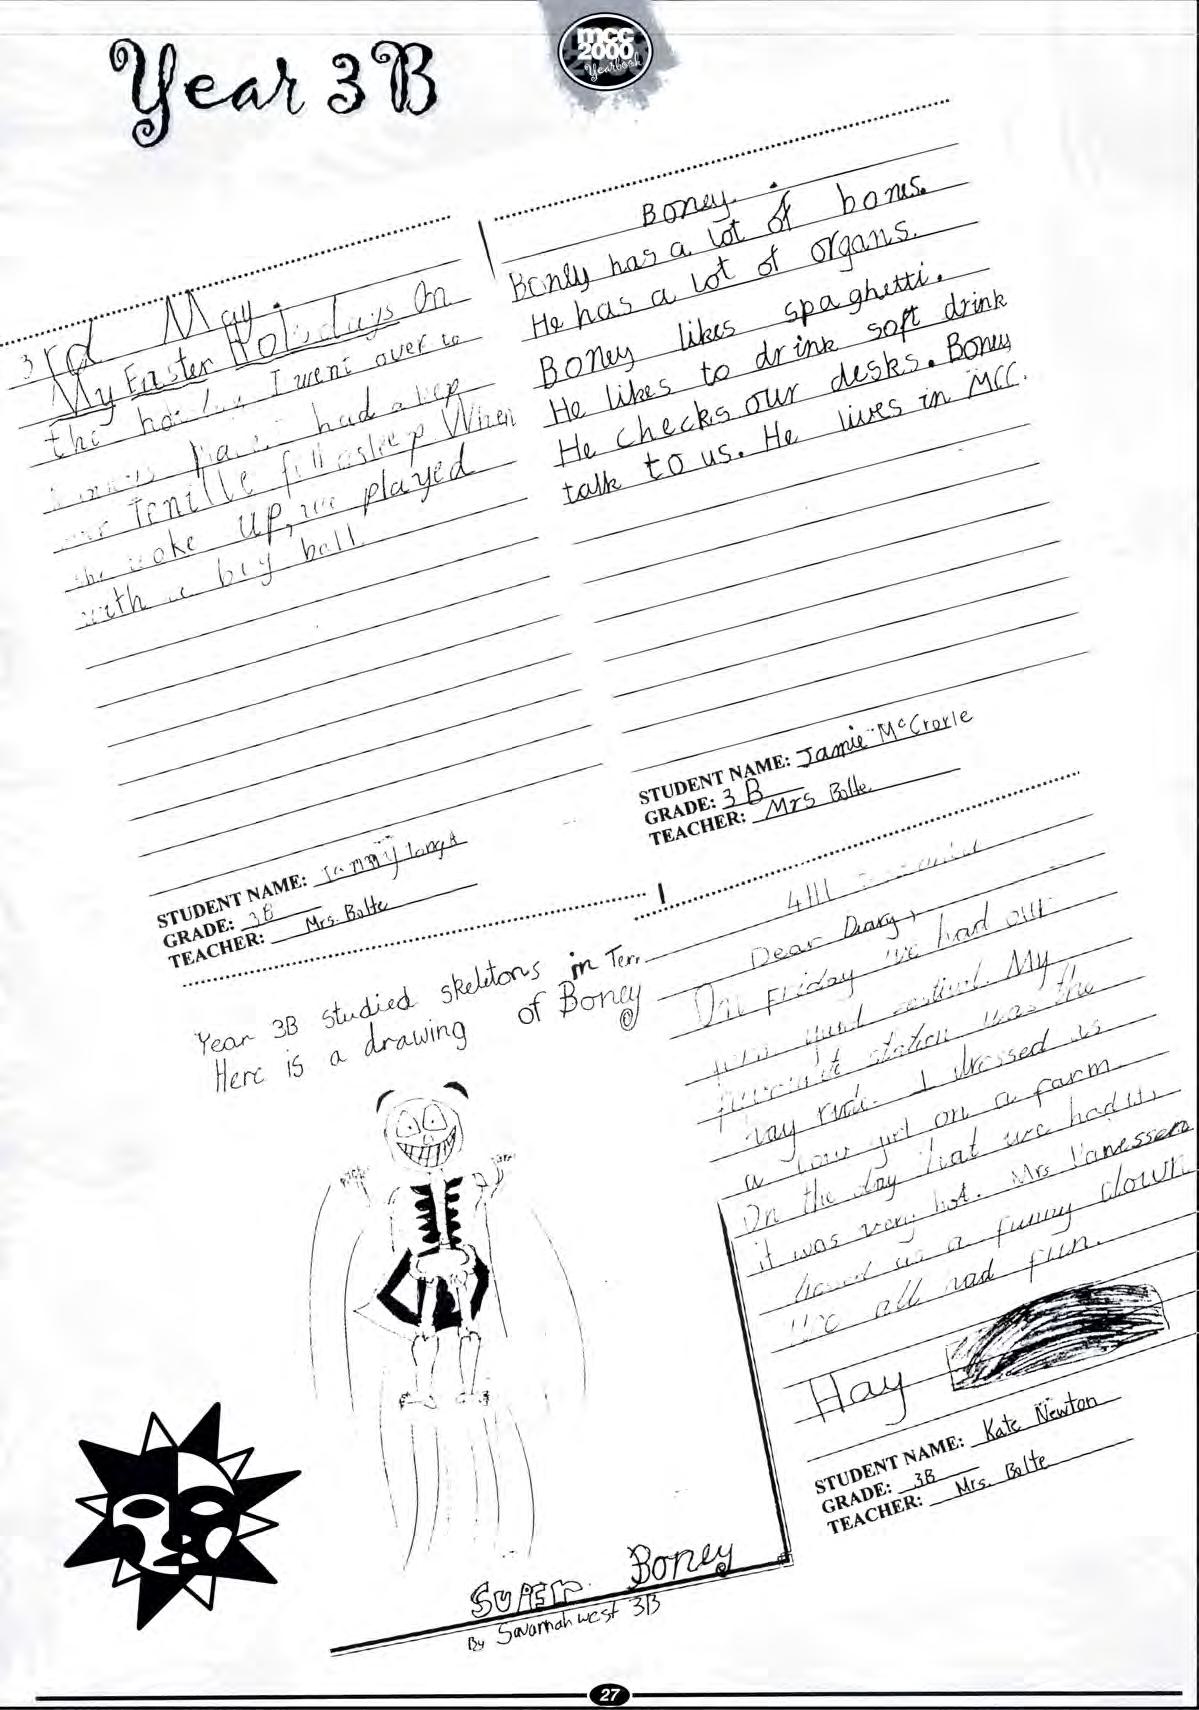 Year 3B
mcc
2000
Yearbook
3rd May.
My Easter Holidays On
the I went over to
had a
Tenille fell asleep When
she woke up, we played
with a big ball.
STUDENT NAME:
GRADE: 3B
TEACHER: Mrs. Bolte
Boney.
Boney has a lot of bones.
He has a lot of organs.
Boney likes spaghetti.
He likes to drink soft drink
He checks our desks. Boney
talk to us. He lives in MCC.
STUDENT NAME: Jamie McCrorie
GRADE: 3B
TEACHER: Mrs Bolte
Year 3B studied skeletons in
Here is a drawing of Boney
SUPER Boney
By Savannah West 3B
Dear Diary,
On Friday we had our
festival. My
favourite station was the
hay ride. I dressed as
a cow girl on a farm.
On the day that we had it,
it was very hot. Mrs
as a funny clown
We all had fun.
Hay
STUDENT NAME: Kate Newton
GRADE: 3B
TEACHER: Mrs. Bolte
27